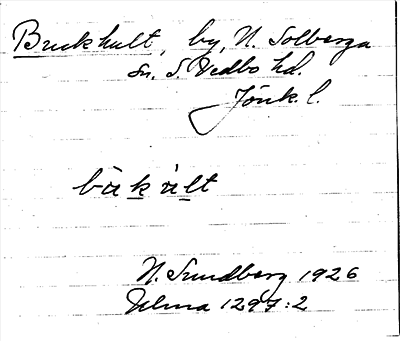 Buckhult, by, N. Solberga
sn. S. Vedbo hd.
Jönk. l.
N. Sundberg 1926
Ulma 1297:2